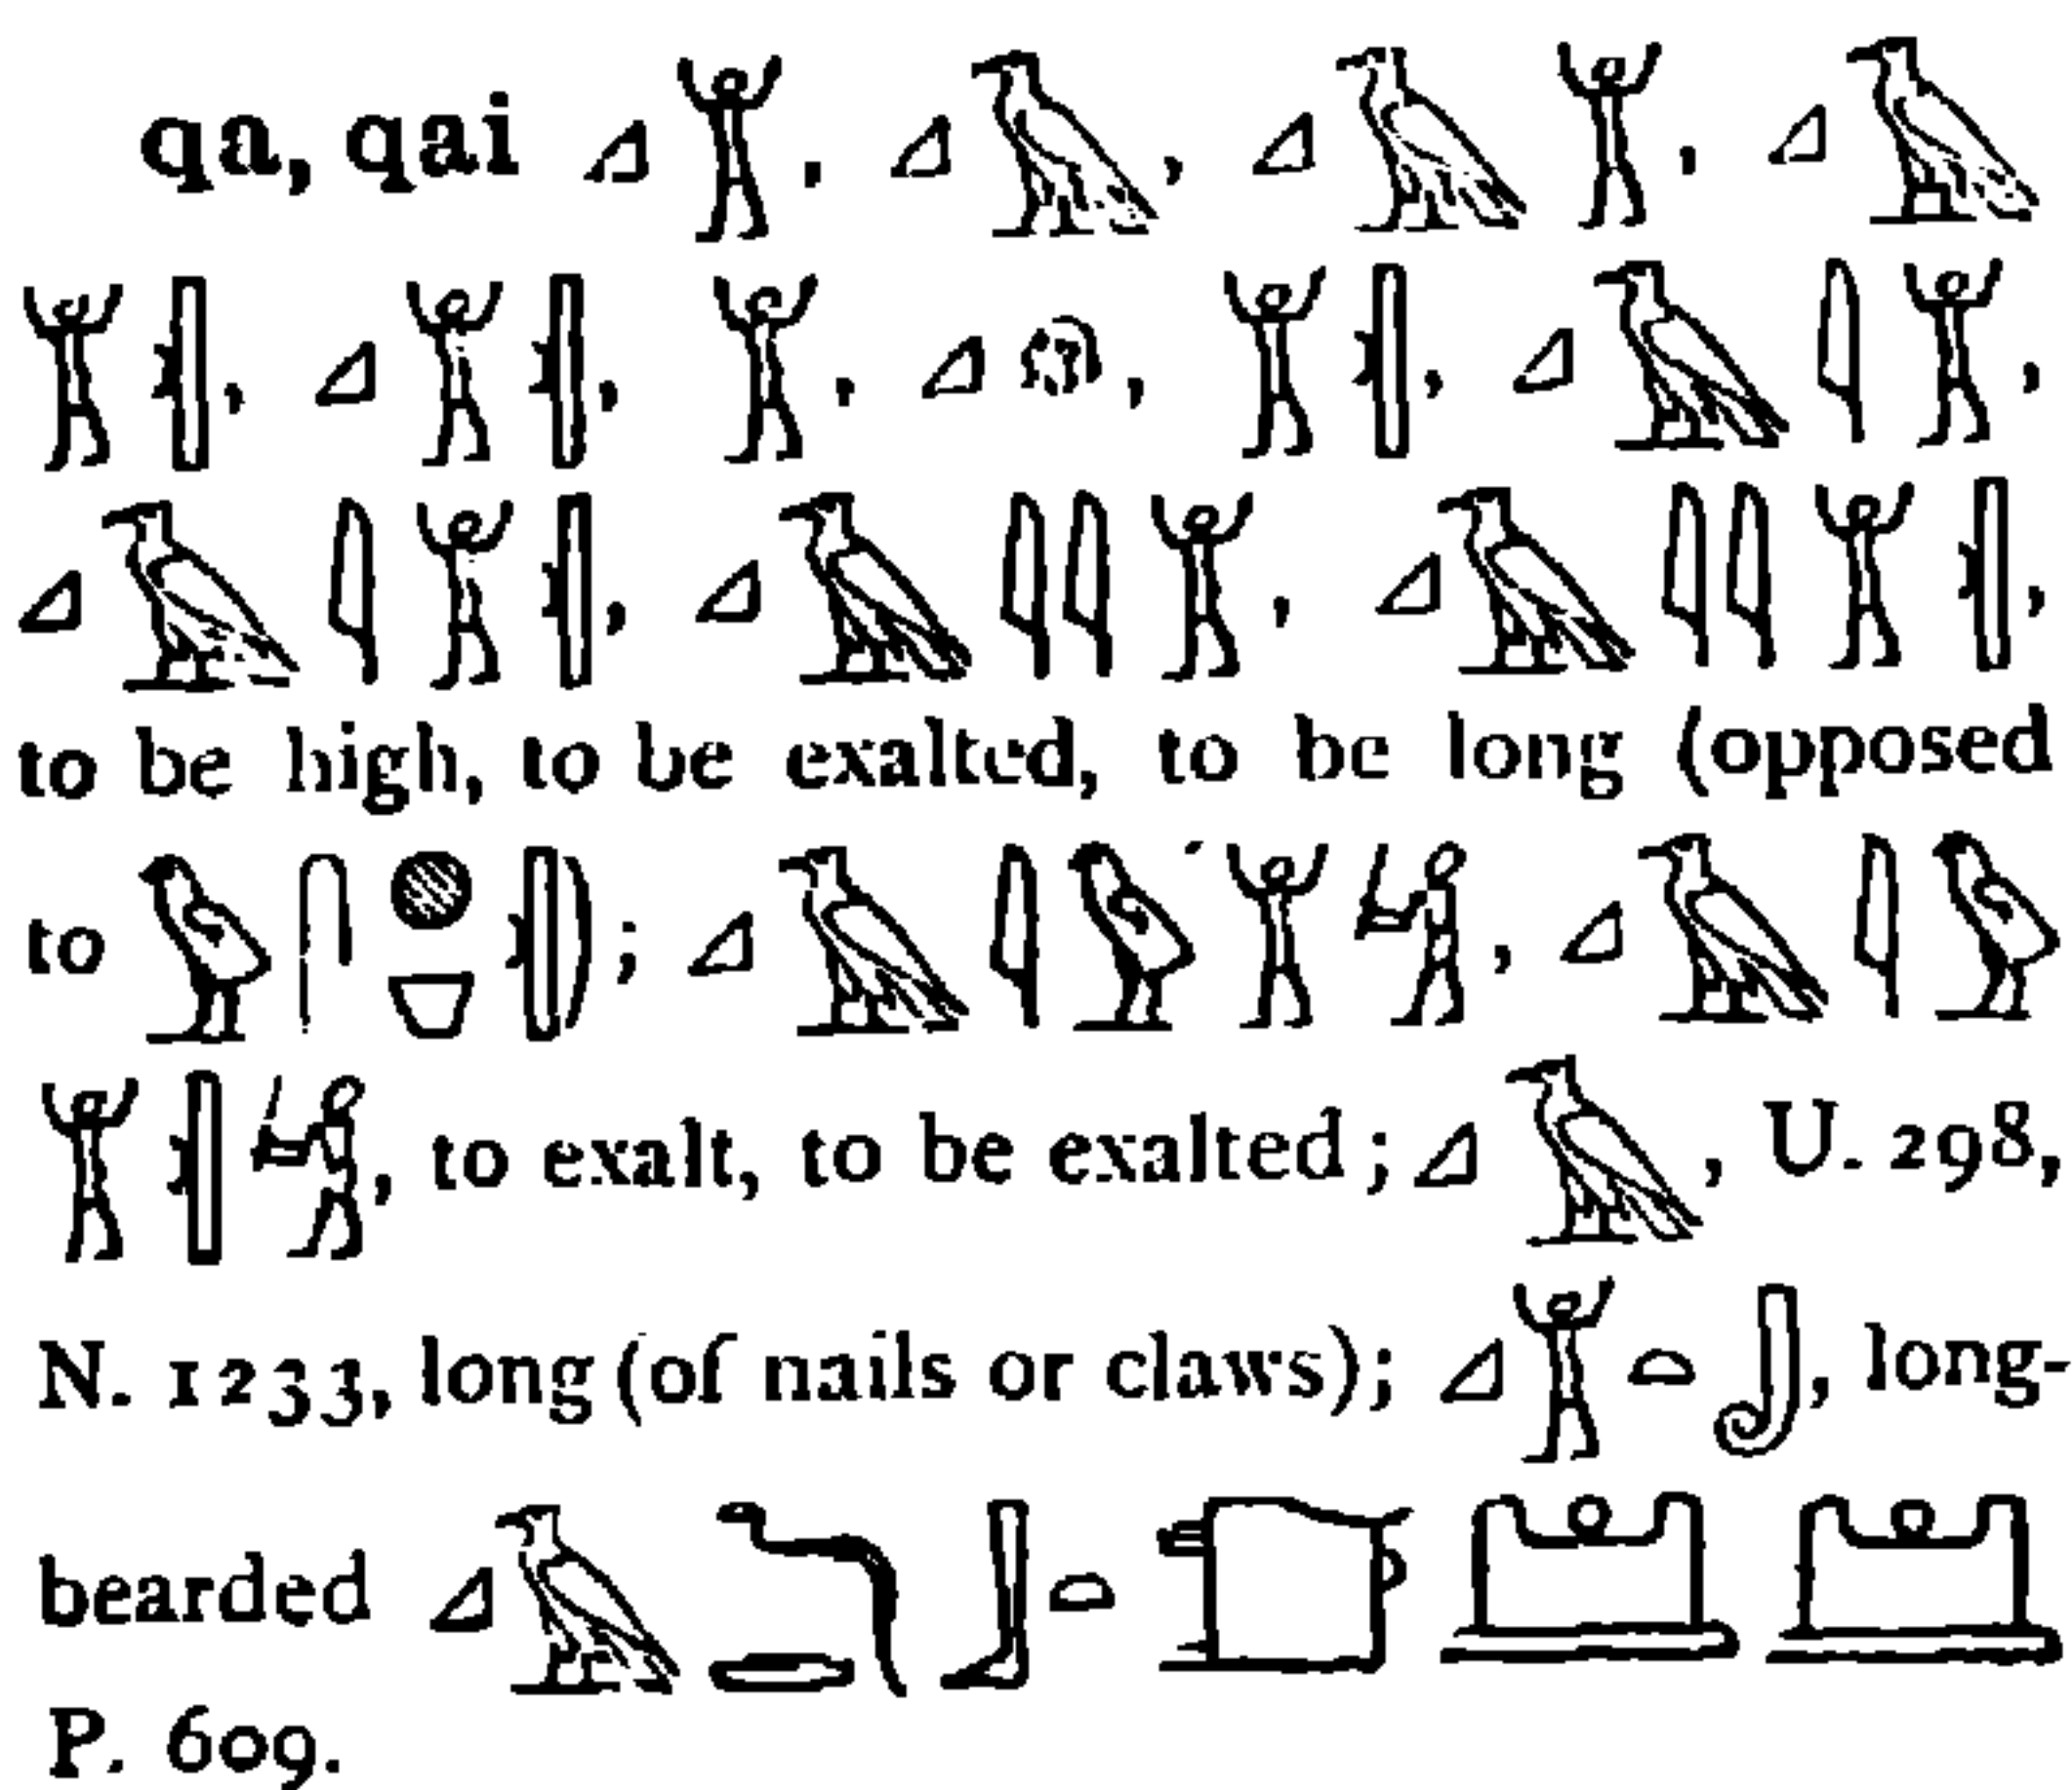 qa, qai 𓈎𓀠, 𓈎𓄿, 𓈎𓄿𓀠, 𓈎𓄿
𓀠𓏛, 𓈎𓀠𓏛, 𓀠, 𓈎, 𓀠𓏛, 𓈎𓄿𓇋𓀠,
𓈎𓄿𓇋𓀠𓏛, 𓈎𓄿𓇋𓇋𓀠, 𓈎𓄿𓇋𓇋𓀠𓏛,
to be high, to be exalted, to be long (opposed
to 𓅱𓋴𓐍𓏛); 𓈎𓄿𓇋𓅱𓀠𓀜, 𓈎𓄿𓇋𓅱
𓀠𓏛𓀜, to exalt, to be exalted; 𓈎𓄿, U. 298,
N. 1233, long (of nails or claws); 𓈎𓀠𓏏, long-
bearded 𓈎𓄿𓃀𓏏
P. 609.